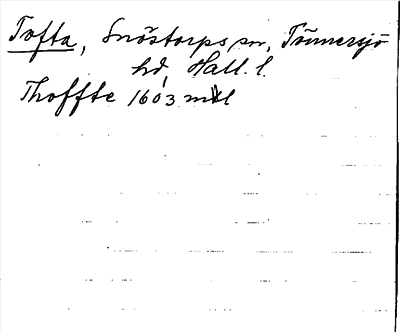 Tofta, Snöstorps sn, Tönnersjö
hd, Hall. l.
Thoffte 1603 mtl